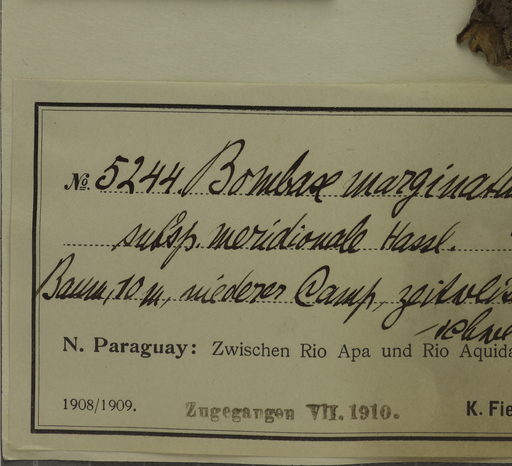 No. 5244. Bombax marginatu
subsp. meridionale Hassl.
Baum, 10 m, niederer Camp,
N. Paraguay: Zwischen Rio Apa und Rio Aquida
1908/1909. Zugegangen VII. 1910. K. Fie